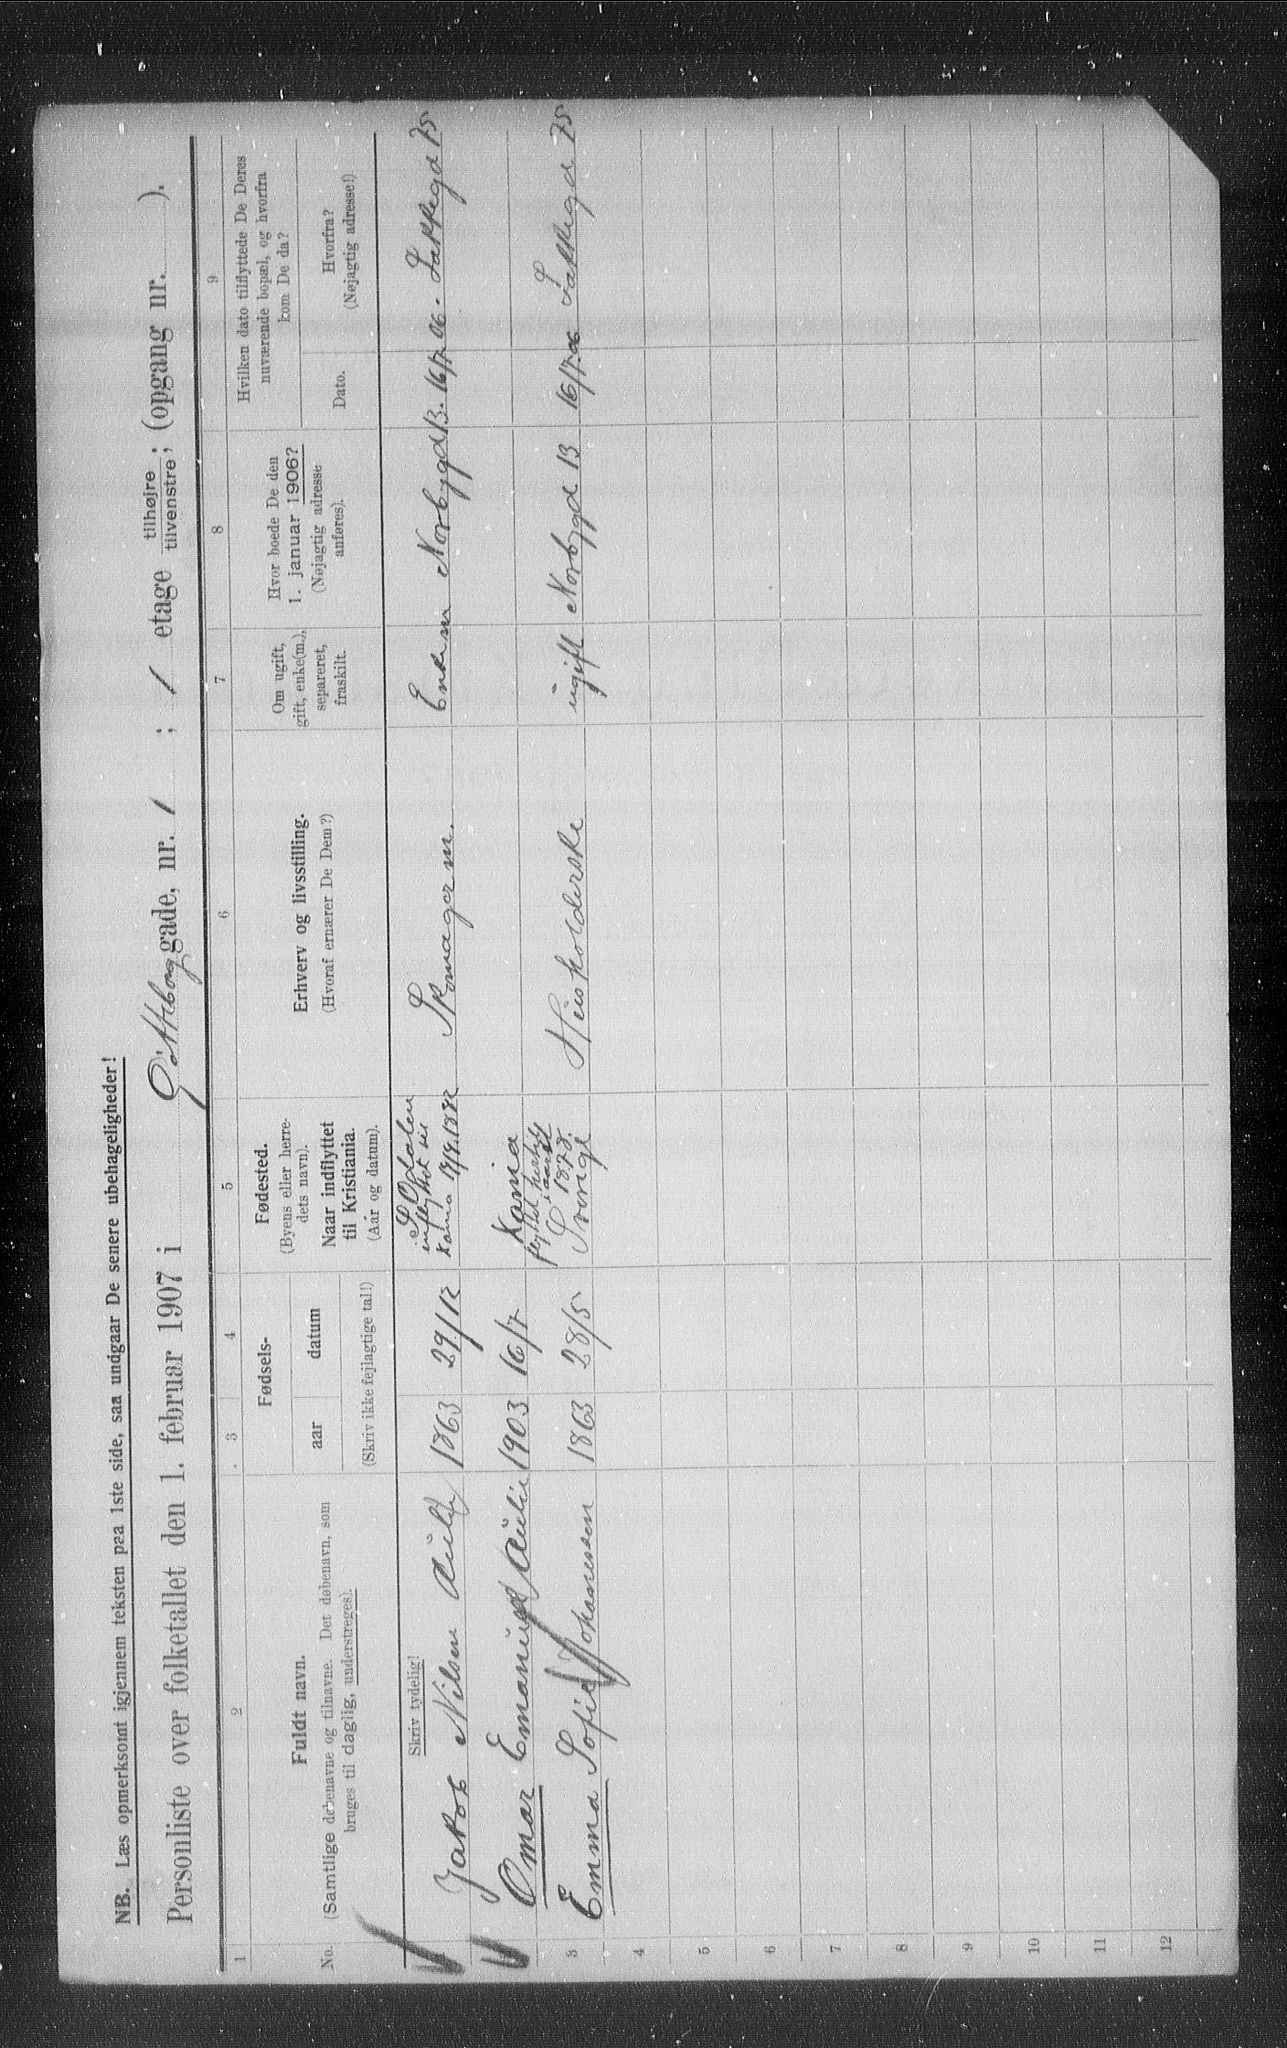 NB. Læs opmerksomt igjennem teksten paa 1ste side, saa undgaar De senere ubehageligheder!
Personliste over folketallet den 1. februar 1907 i Götteborg gade, nr. 1 ; 1 etage tilhøjre / tilvenstre ; (opgang nr. ).
1 2 3 4 5 6 7 8 9
No.
Fuldt navn.
(Samtlige døbenavne og tilnavne. Det døbenavn, som
bruges til daglig, understreges).
Skriv tydelig!
Fødsels-
aar datum
(Skriv ikke fejlagtige tal!)
Fødested.
(Byens eller herre-
dets navn).
Naar indflyttet
til Kristiania.
(Aar og datum).
Erhverv og livsstilling.
(Hvoraf ernærer De Dem?)
Om ugift,
gift, enke(m.),
separeret,
fraskilt.
Hvor boede De den
1. januar 1906?
(Nøjagtig adresse
anføres).
Hvilken dato tilflyttede De Deres
nuværende bopæl, og hvorfra
kom De da?
Dato.
Hvorfra?
(Nøjagtig adresse!)
Jakob Nilsen 1863 29/12 S. Odalen
Skomagerm. Enkem Norbygd 13. 16/7-06. Lakkegd 75
Omar Emanuel 1903 16/7 Kania
3 Emma Sofie Johanessen 1863 28/5 Sverige
1878.
Husholderske ugift Norbygd 13 16/7.06 Lakkegd 75
4
5
6
7
8
9
10
11
12